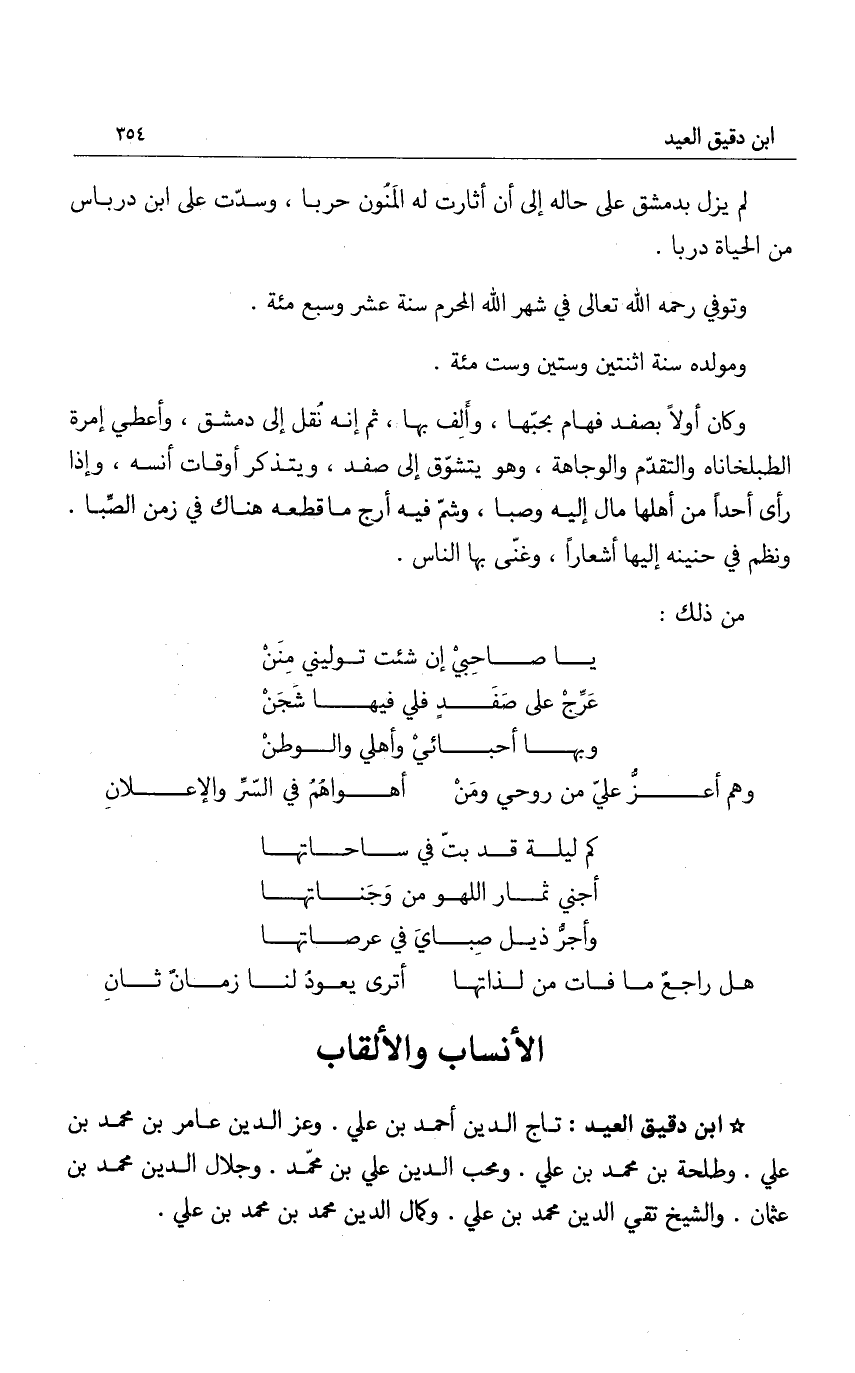 ابن دقيق العيد ٣٥٤
لم يزل بدمشق على حاله إلى أن أثارت له المَنُون حربا ، وسدّت على ابن درباس
من الحياة دربا .
وتوفي رحمه الله تعالى في شهر الله المحرم سنة عشر وسبع مئة .
ومولده سنة اثنتين وستين وست مئة .
وكان أولاً بصفد فهام بحبّها ، وأَلِف بها ، ثم إنه نُقل إلى دمشق ، وأعطي إمرة
الطبلخاناه والتقدّم والوجاهة ، وهو يتشوّق إلى صفد ، ويتذكر أوقات أنسه ، وإذا
رأى أحداً من أهلها مال إليه وصبا ، وشمّ فيه أرج ما قطعه هناك في زمن الصِّبا .
ونظم في حنينه إليها أشعاراً ، وغنّى بها الناس .
من ذلك :
يا صاحِبيْ إن شئت توليني مِنَنْ
عَرِّجْ على صَفَدٍ فلي فيها شَجَنْ
وبها أحبائيْ وأهلي والوطنْ
وهم أعزُّ عليّ من روحي ومَنْ أهواهُمُ في السّرِّ والإعلانِ
كم ليلة قد بتّ في ساحاتها
أجني ثمار اللهو من وَجَناتها
وأجرُّ ذيل صِبايَ في عرصاتها
هل راجعٌ ما فات من لذاتها أترى يعودُ لنا زمانٌ ثانِ
الأنساب والألقاب
☆ ابن دقيق العيد : تاج الدين أحمد بن علي . وعز الدين عامر بن محمد بن
علي . وطلحة بن محمد بن علي . ومحب الدين علي بن محمّد . وجلال الدين محمد بن
عثمان . والشيخ تقي الدين محمد بن علي . وكمال الدين محمد بن محمد بن علي .